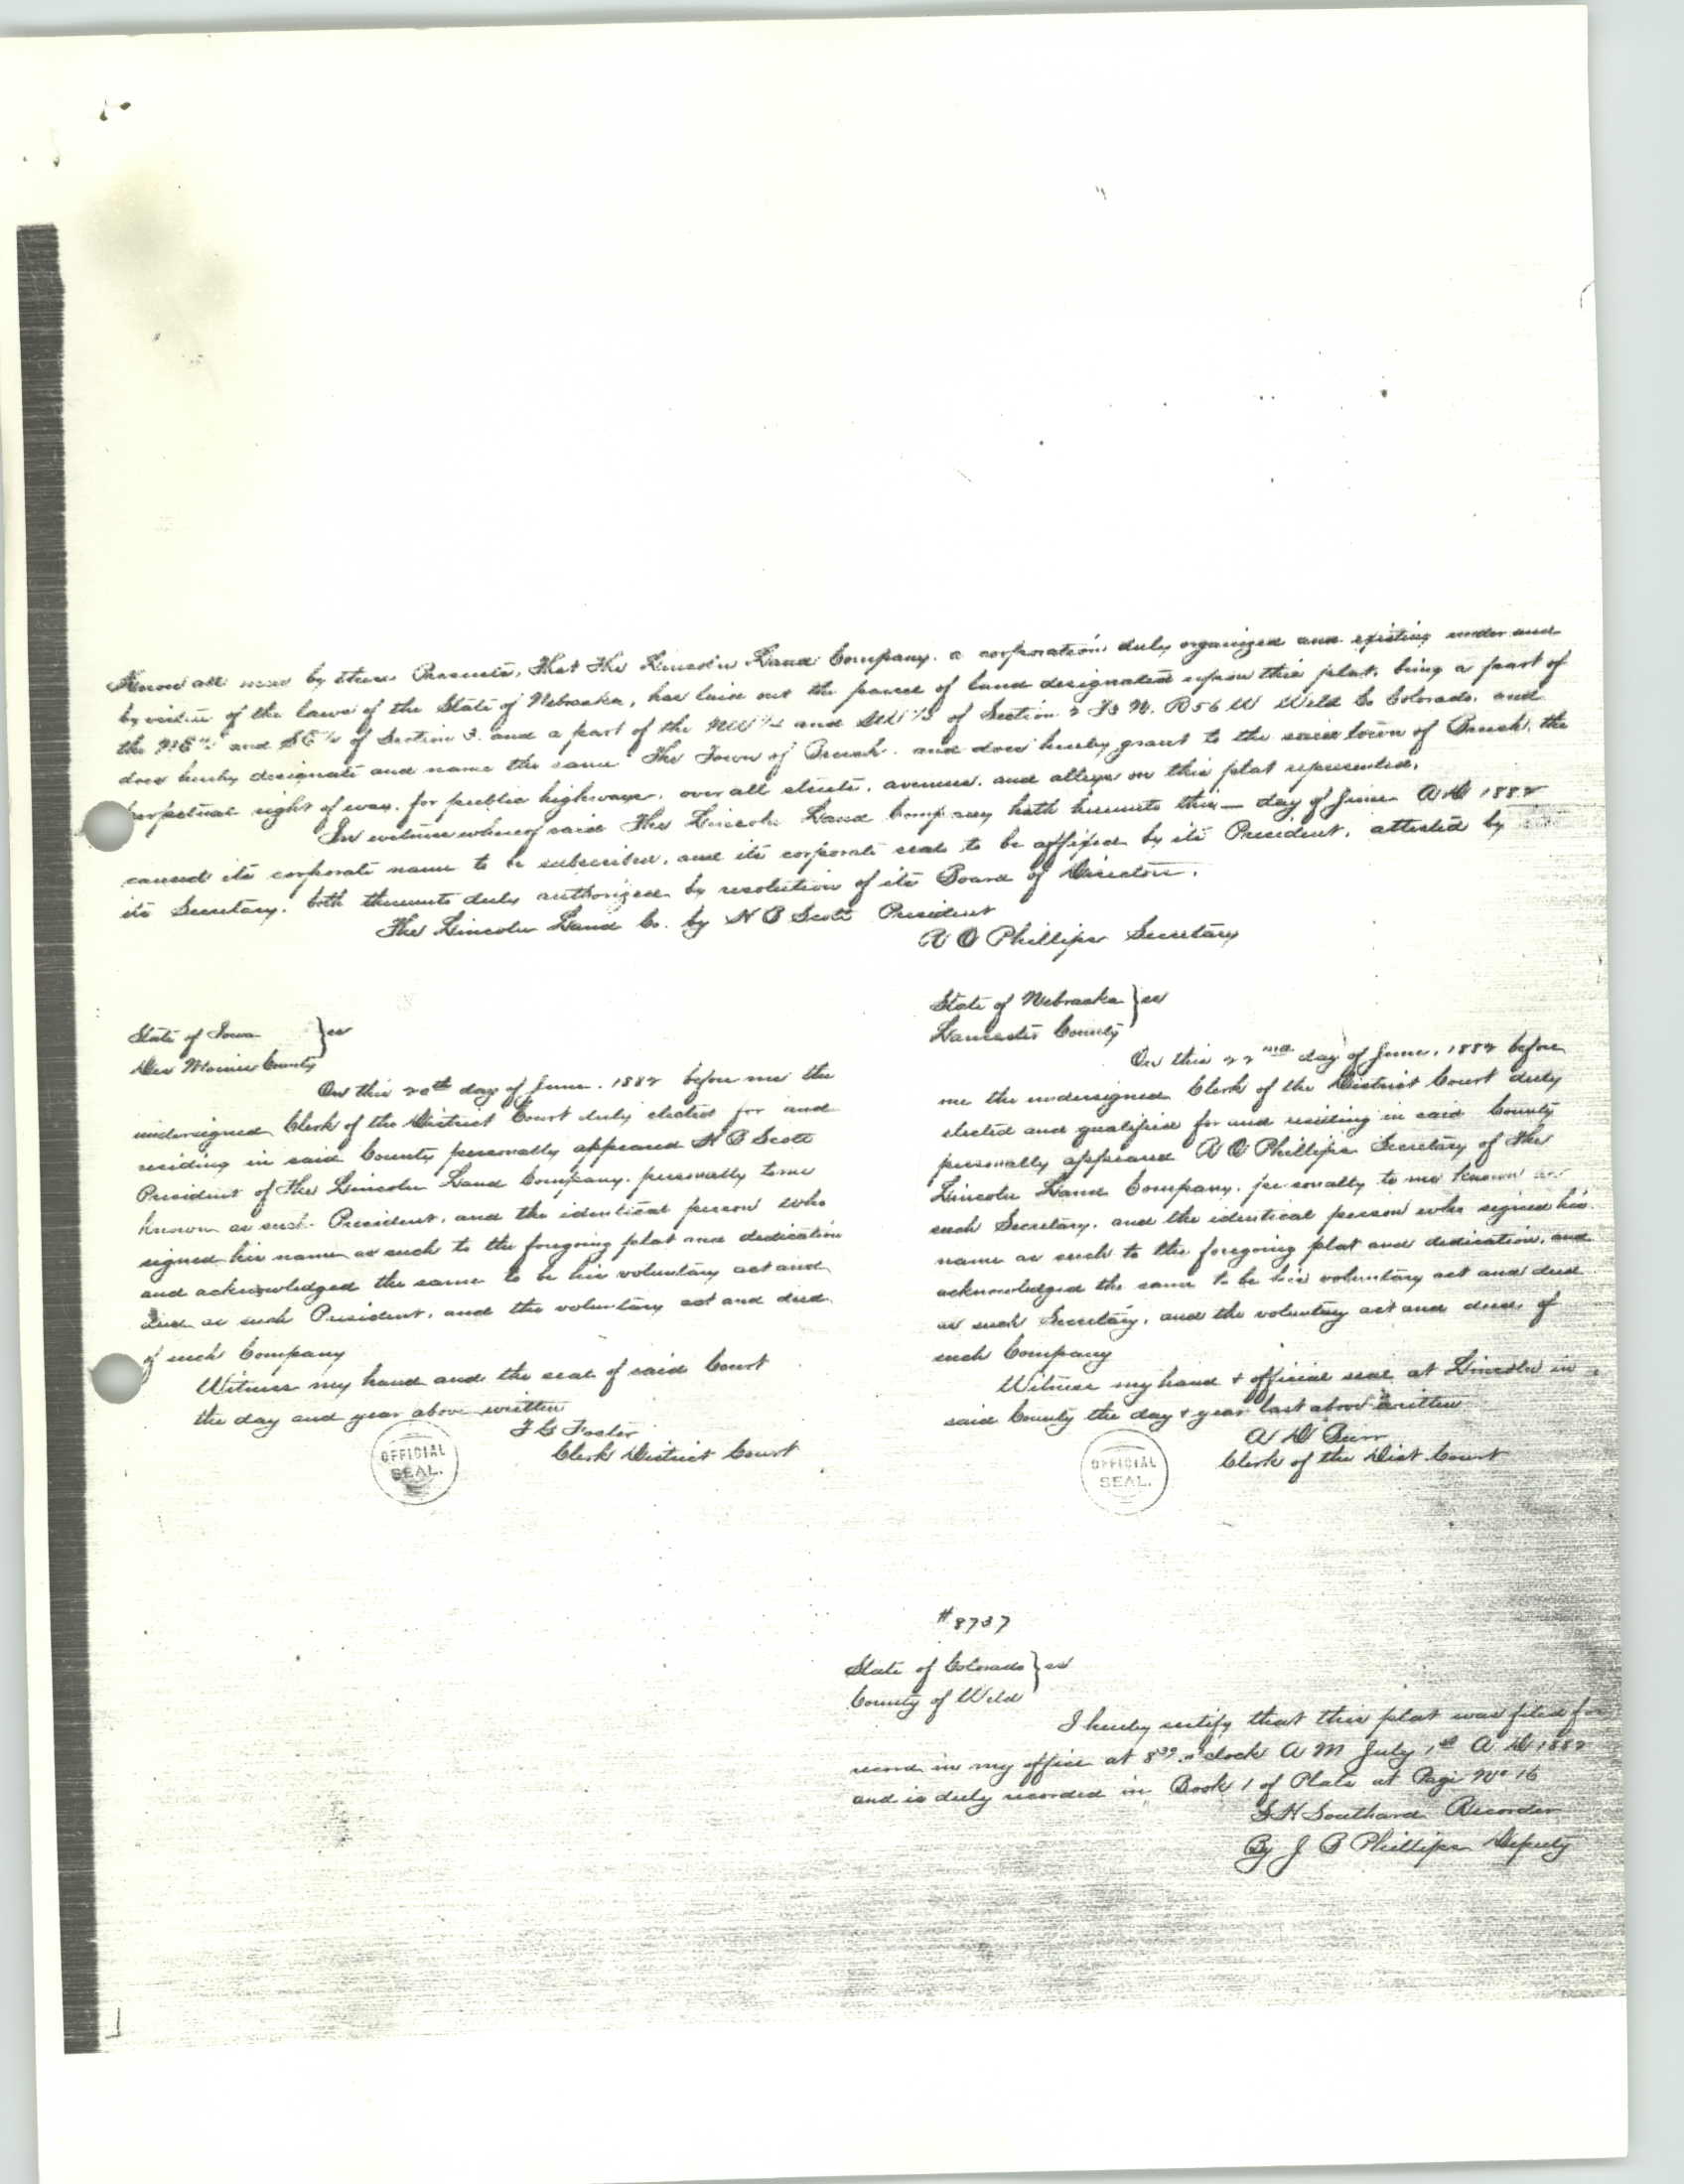 Know all men by these Presents, That The Lincoln Land Company, a corporation duly organized and existing under and
by virtue of the laws of the State of Nebraska, has laid out the parcel of land designated upon this plat, being a part of
the NE 1/4 and SE 1/4 of Section 3. and a part of the NW 1/4 and SW 1/4 of Section 2 T3 N. R56 W Weld Co Colorado, and
does hereby designate and name the same "The Town of Brush. and does hereby grant to the said town of Brush, the
perpetual right of way, for public highways, over all streets, avenues, and alleys on this plat represented.
In witness whereof said The Lincoln Land Company hath hereunto this — day of June A D 1882
caused its corporate name to be subscribed, and its corporate seal to be affixed by its President, attested by
its Secretary, both thereunto duly authorized by resolution of its Board of Directors.
The Lincoln Land Co. by H B Scott President
R O Phillips Secretary
State of Iowa } ss
Des Moines County
On this 20th day of June, 1882 before me the
undersigned Clerk of the District Court duly elected for and
residing in said County personally appeared H B Scott
President of The Lincoln Land Company, personally to me
known as such President, and the identical person who
signed his name as such to the foregoing plat and dedication
and acknowledged the same to be his voluntary act and
deed as such President, and the voluntary act and deed
of such Company
Witness my hand and the seal of said Court
the day and year above written
T G Foster
Clerk District Court
OFFICIAL
SEAL.
State of Nebraska } ss
Lancaster County
On this 22nd day of June, 1882 before
me the undersigned Clerk of the District Court duly
elected and qualified for and residing in said County
personally appeared R O Phillips Secretary of The
Lincoln Land Company, personally to me known as
such Secretary, and the identical person who signed his
name as such to the foregoing plat and dedication, and
acknowledged the same to be his voluntary act and deed
as such Secretary, and the voluntary act and deed of
such Company
Witness my hand + official seal at Lincoln in
said County the day + year last above written
A D Burr
Clerk of the Dist. Court
OFFICIAL
SEAL.
#8737
State of Colorado } ss
County of Weld
I hereby certify that this plat was filed for
record in my office at o'clock A M July 1st A D 1882
and is duly recorded in Book 1 of Plats at Page No 16
Southard Recorder
By J B Phillips Deputy